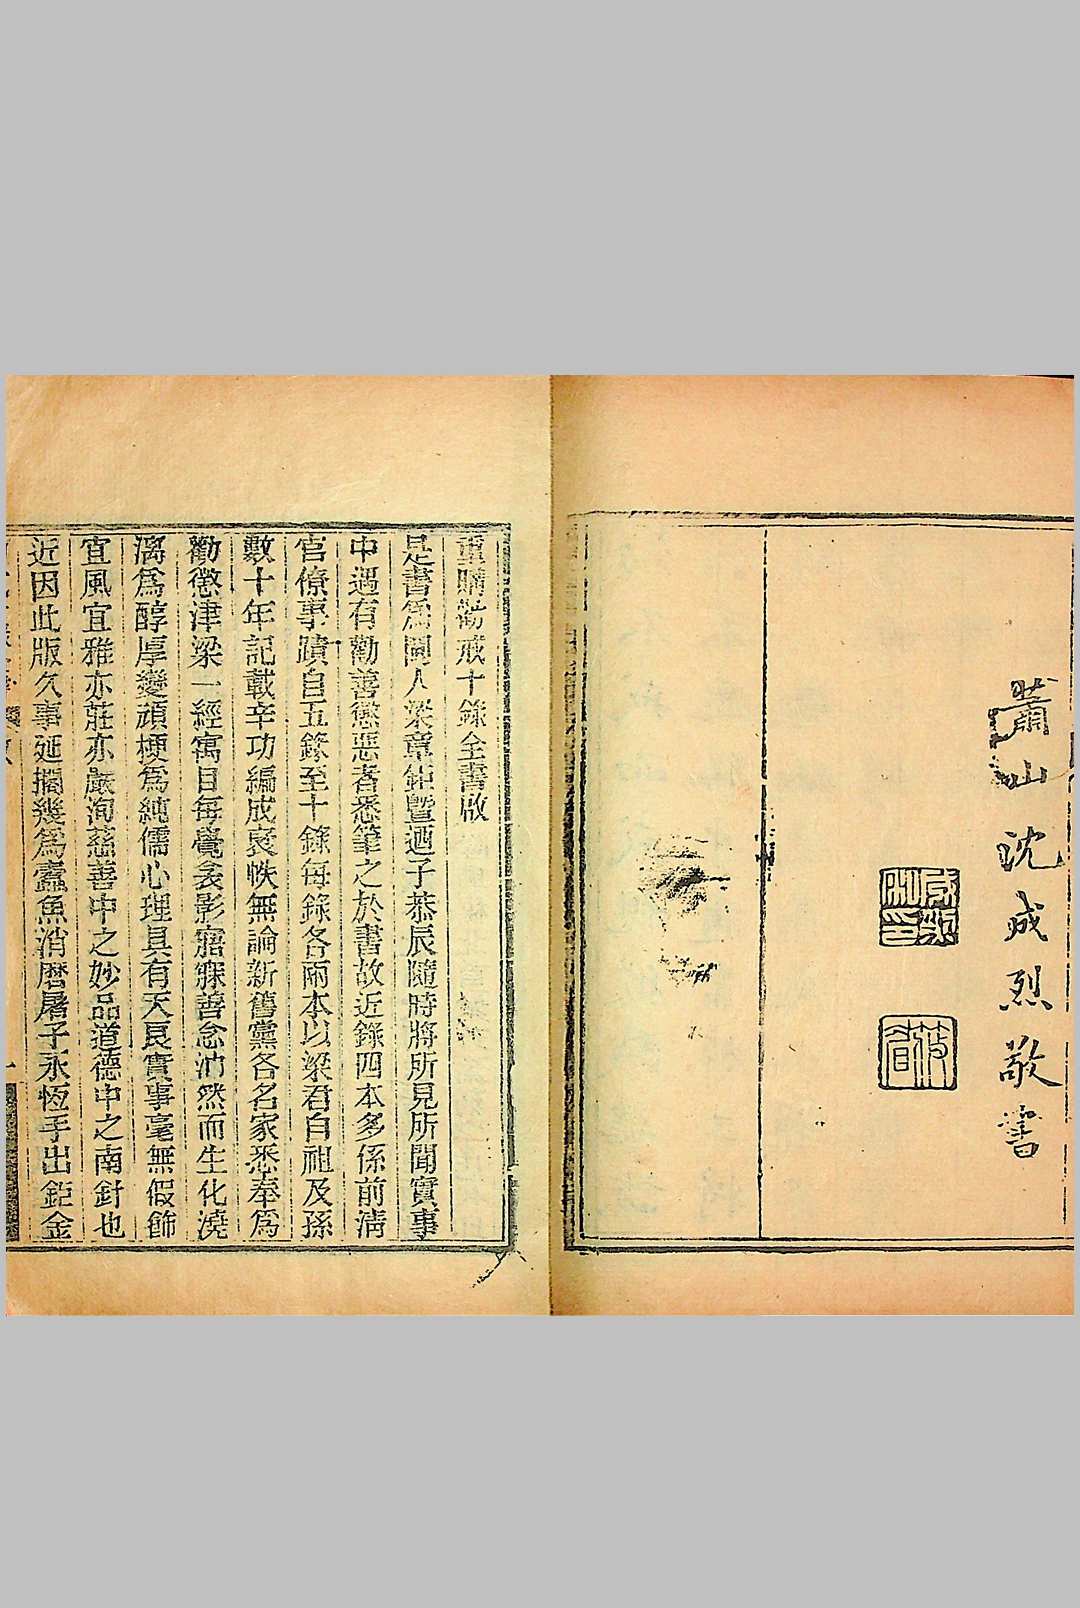 蕭山沈成烈敬書
重購勸戒十錄全書啟
是書爲閩人梁章鉅暨迺子恭辰隨時將所見所聞實事
中遇有勸善懲惡者悉筆之於書故近錄四本多係前清
官僚事蹟自五錄至十錄每錄各兩本以梁君自祖及孫
數十年記載辛功編成袠帙無論新舊黨各名家悉奉爲
勸懲津梁一經寓目每覺衾影寤寐善念油然而生化澆
漓爲醇厚變頑梗爲純儒心理具有天良實事毫無假飾
宜風宜雅亦莊亦嚴洵慈善中之妙品道德中之南針也
近因此版久事延擱幾爲蠹魚消磨屠子永恆手出鉅金